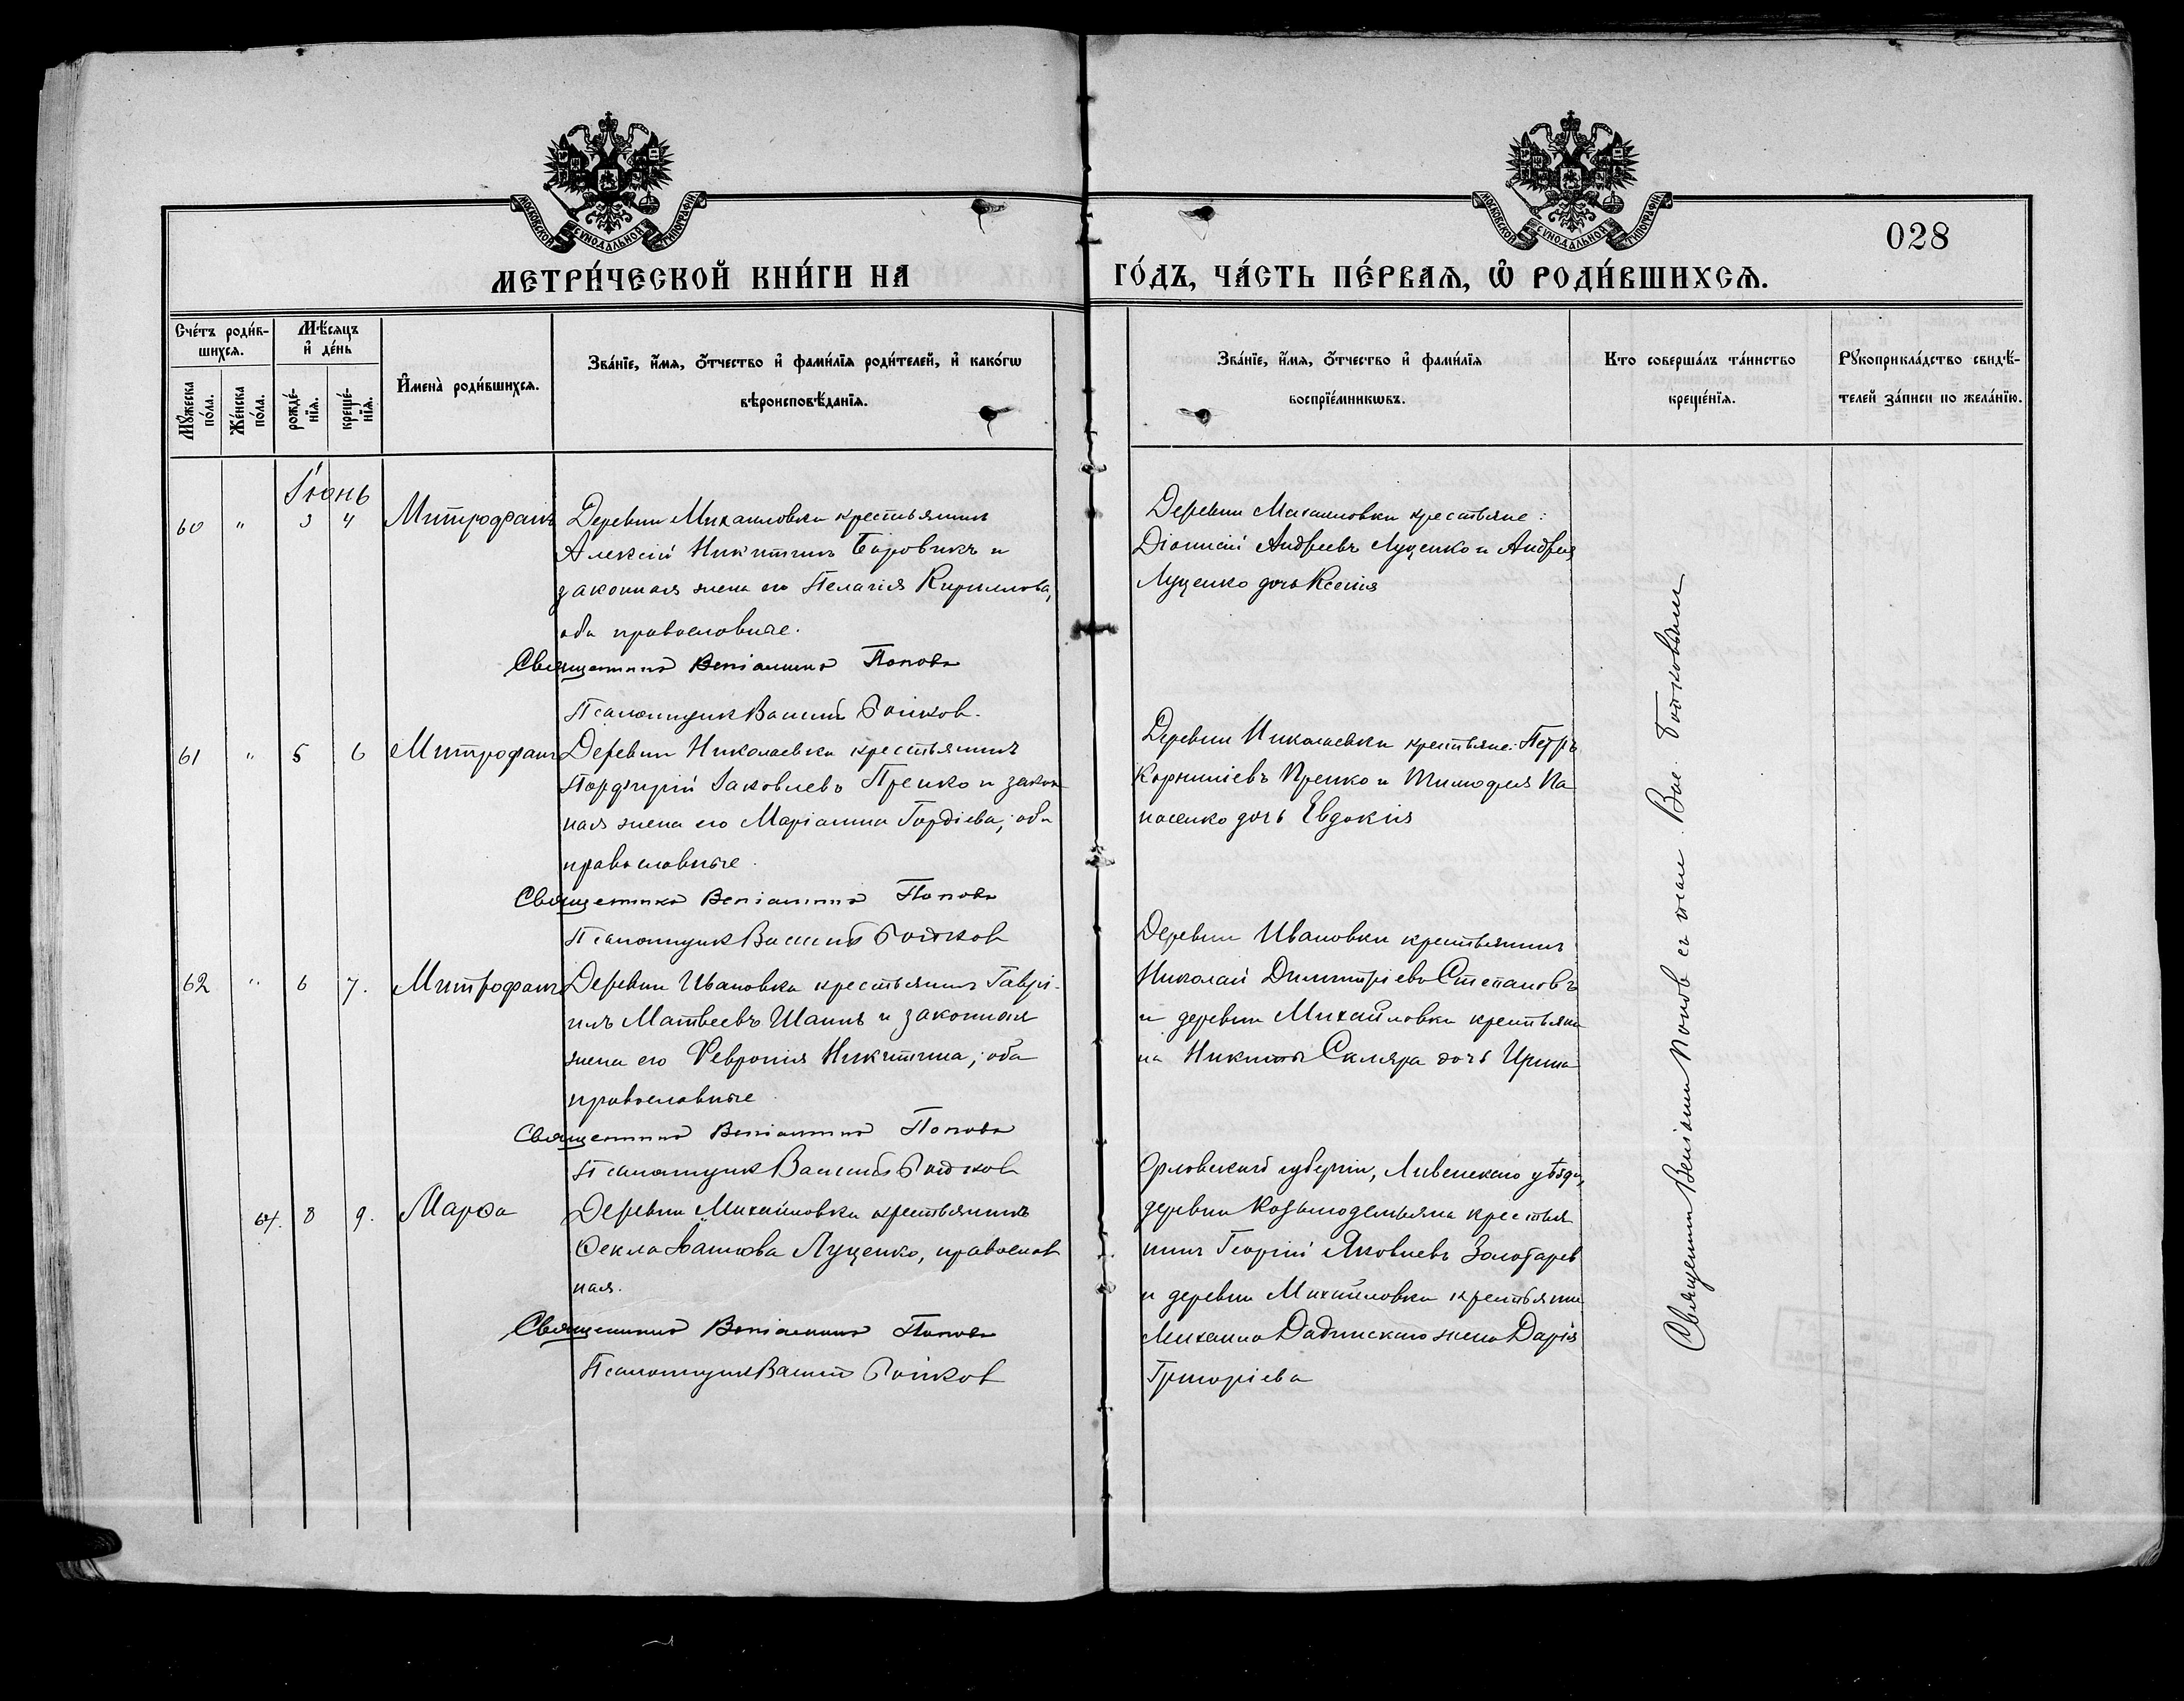 МОСКОВСКОЙ СѴНОДАЛЬНОЙ ТИПОГРАФІИ
МОСКОВСКОЙ СѴНОДАЛЬНОЙ ТИПОГРАФІИ
028
МЕТРИ́ЧЕСКОЙ КНИ́ГИ НА
ГО́ДЪ, ЧА́СТЬ ПЕ́РВАѦ, Ѡ҆ РОДИ́ВШИХСѦ.
Сче́тъ роди́в-
шихсѧ.
Мꙋ́жеска по́ла.
Же́нска по́ла.
Мѣ́сѧцъ
и҆ де́нь
рожде́-
нїѧ.
креще́-
нїѧ.
И҆мена̀ роди́вшихсѧ.
Зва́нїе, и҆́мѧ, ѻ҆́тчество и҆ фами́лїѧ роди́телей, и҆ како́гѡ
вѣроисповѣ́данїѧ.
Зва́нїе, и҆́мѧ, ѻ҆́тчество и҆ фами́лїѧ
воспрїе́мникѡвъ.
Кто соверша́лъ та́инство
креще́нїѧ.
Рꙋкоприкла́дство свидѣ́-
телей за́писи по жела́нїю.
Іюнь
60 " 3 4 Митрофанъ
Деревни Михайловки крестьянинъ
Алексій Никитинъ Боровикъ и
законная жена его Пелагія Кириллова,
оба православные.
Священникъ Веніаминъ Поповъ
Псаломщикъ Василій Бойков.
Деревни Михайловки крестьяне:
Діонисій Андреевъ Луценко и Андрея
Луценко дочь Ксенія
61 " 5 6 Митрофанъ
Деревни Николаевки крестьянинъ
Порфирій Іаковлевъ Пренко и закон
ная жена его Маріанна Гордіева; оба
православные.
Священникъ Веніаминъ Поповъ
Псаломщикъ Василій Бойков
Деревни Николаевки крестьяне: Петръ
Корниліевъ Пренко и Тимофея Па
насенко дочь Евдокія
62 " 6 7. Митрофанъ
Деревни Ивановки крестьянинъ Гаврі-
илъ Матвеевъ Шаинъ и законная
жена его Феврония Никитина; оба
православные
Священникъ Веніаминъ Поповъ
Псаломщикъ Василій Бойков
Деревни Ивановки крестьянинъ
Николай Димитріевъ Степановъ
и деревни Михайловки крестьяни
на Никиты Скляра дочь Ирина
64. 8 9. Марѳа
Деревни Михайловки крестьянинъ
Ѳекла Луценко, православ
ная.
Священникъ Веніаминъ Поповъ
Псаломщикъ Василій Бойков
Орловской губерніи, Ливенскаго уѣзда,
деревни Козьмодемьяна крестья
нинъ Георгій Яковлевъ Золотарев
и деревни Михайловки крестьянина
Михаила Дадинскаго жена Дарія
Григоріева
Священникъ Веніаминъ Попов съ псал. Вас. Бойковымъ